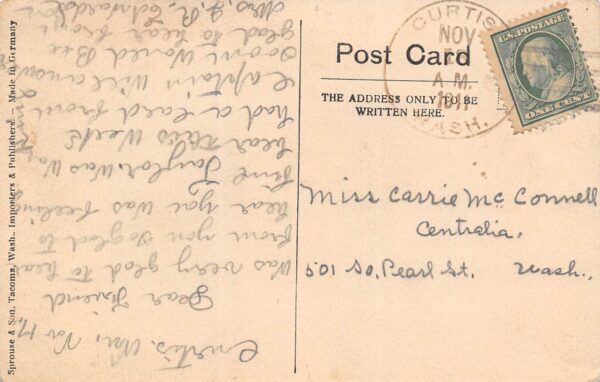 Sprouse & Son, Tacoma, Wash., Importers & Publishers. Made in Germany
Post Card
THE ADDRESS ONLY TO BE
WRITTEN HERE.
CURTIS
NOV
A.M.
1911
WASH.
U.S. POSTAGE
ONE CENT
Miss Carrie McConnell
Centralia,
501 So. Pearl St. Wash.
Curtis, Wn, Nov 17,
Dear Friend
Was very glad to hear
from you so glad to
hear you was feeling
fine Taylor was way
hear this week
had a card from
Captain Wilcanou
soon Wared Bee
glad to hear from
Mrs. J. R.